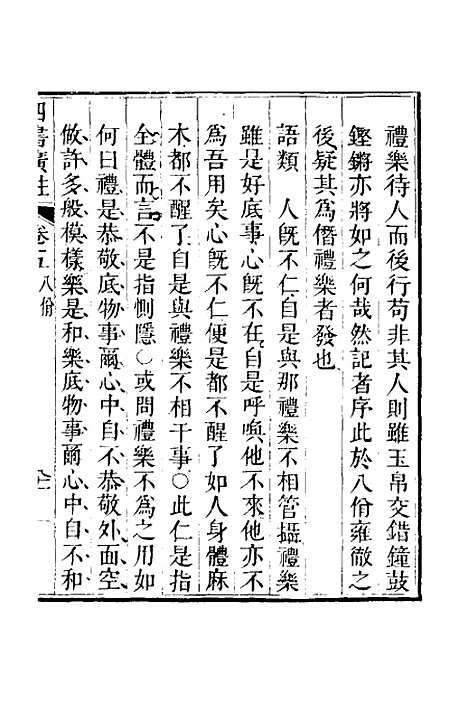 禮樂待人而後行苟非其人則雖玉帛交錯鐘鼓
鏗鏘亦將如之何哉然記者序此於八佾雍徹之
後疑其爲僭禮樂者發也
語類　人旣不仁自是與那禮樂不相管攝禮樂
雖是好底事心旣不在自是呼喚他不來他亦不
爲吾用矣心旣不仁便是都不醒了如人身體麻
木都不醒了自是與禮樂不相干事○此仁是指
全體而言不是指惻隱○或問禮樂不爲之用如
何曰禮是恭敬底物事爾心中自不恭敬外面空
做許多般模樣樂是和樂底物事爾心中自不和
四書廣註　卷五　八佾